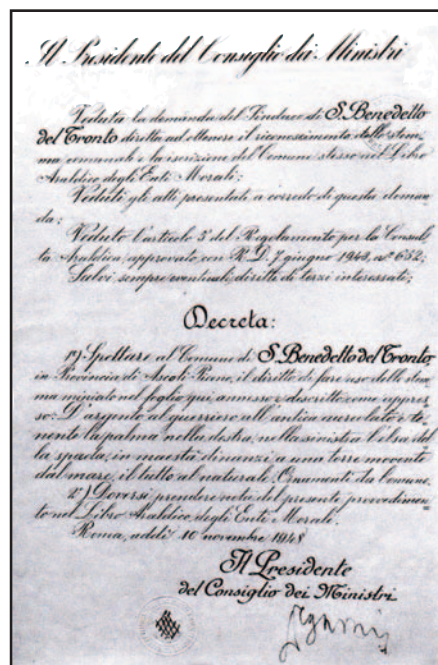 Il Presidente del Consiglio dei Ministri
Veduta la domanda del Sindaco di S. Benedetto
del Tronto diretta ad ottenere il riconoscimento dello stem=
ma comunale e la iscrizione del Comune stesso nel Libro
Araldico degli Enti Morali;
Veduti gli atti presentati a corredo di questa doman=
da;
Veduto l'articolo 5° del Regolamento per la Consul=
ta Araldica, approvato con R. D. 7 giugno 1943, n° 652;
Salvi sempre eventuali diritti di terzi interessati;
Decreta:
1°) Spettare al Comune di S. Benedetto del Tronto,
in Provincia di Ascoli Piceno, il diritto di fare uso dello stem=
ma miniato nel foglio qui annesso e descritto come appres=
so: D'argento al guerriero all'antica e te=
nente la palma nella destra, nella sinistra l'elsa del=
la spada, in maestà dinanzi a una torre movente
dal mare, il tutto al naturale. Ornamenti da Comune.
2°) Doversi prendere nota del presente provvedimen=
to nel Libro Araldico degli Enti Morali.
Roma, addì 10 novembre 1948
Il Presidente
del Consiglio dei Ministri